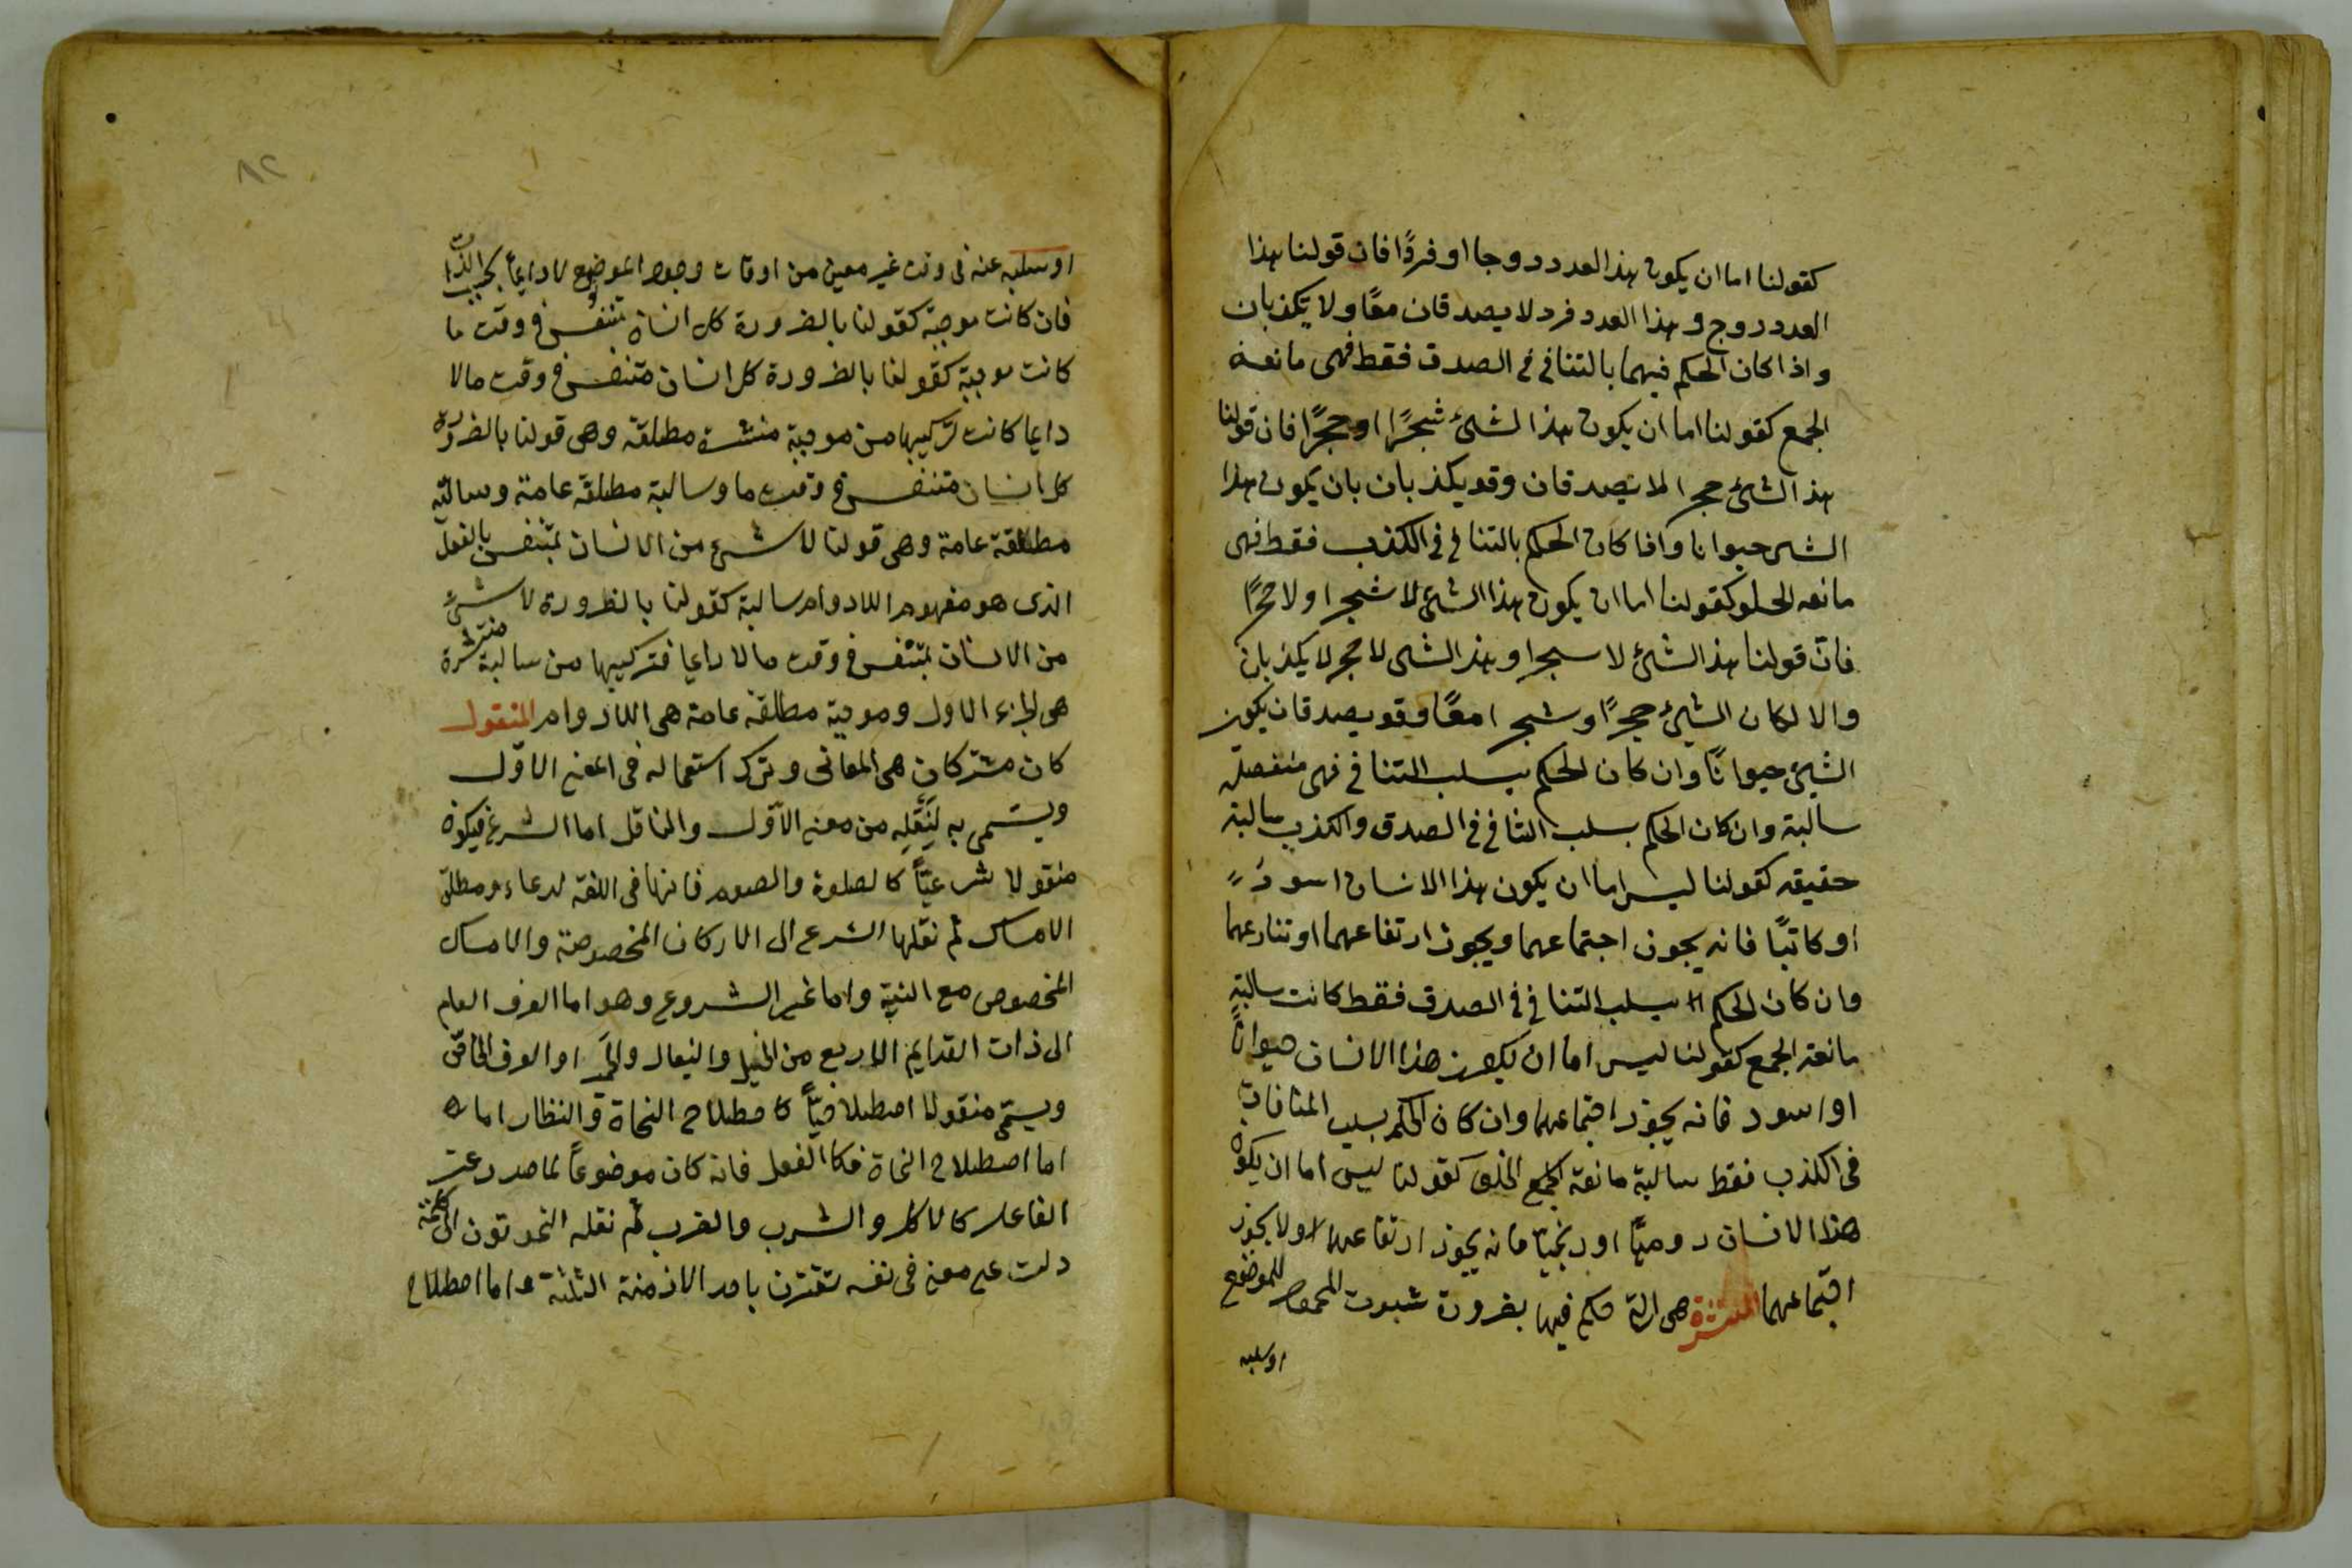 كقولنا اما ان يكون هذا العدد زوجا او فردًا فان قولنا هذا
العدد زوج و هذا العدد فرد لا يصدقان معًا و لا يكذبان
و اذا كان الحكم فيهما بالتنافى فى الصدق فقط فهى مانعة
الجمع كقولنا اما ان يكون هذا الشئ شجرًا او حجرًا فان قولنا
هذا الشئ حجرا لا يصدقان وقد يكذبان بان يكون هذا
الشى حيوانا و اذا كان الحكم بالتنافى فى الكذب فقط فهى
مانعه الخلو كقولنا اما ان يكون هذا الشئ لا شجرا و لا حجرًا
فان قولنا هذا الشئ لا سجرا و هذا الشى لا حجر لا يكذبان
والا لكان الشئ حجرًا و شجرا معًا و قد يصدقان يكون
الشئ حيوانًا وان كان الحكم بسلب التنافى فهى منفصلة
سالبة وان كان الحكم بسلب التنافى فى الصدق والكذب سالبة
حقيقه كقولنا ليس اما ان يكون هذا الانسان اسود
او كاتبًا فانه يجوز اجتماعهما ويجوز ارتفاعهما
وان كان الحكم بسلب التنافى فى الصدق فقط كانت سالبة
مانعة الجمع كقولنا ليس اما ان يكون هذا الانسان حيوانًا
او اسود فانه يجوز اجتماعهما وان كان الحكم بسلب المنافات
فى الكذب فقط سالبة مانعة الجمع الخلو كقولنا ليس اما ان يكون
هذا الانسان روميًا او زنجيًا فانه يجوز ارتفاعهما و لا يجوز
اجتماعهما المنتشرة هى التى حكم فيها بضرورة ثبوت المحمول للموضوع
اوسلبه
٨٢
اوسلبه عنه فى وقت غير معين من اوقات وجود الموضوع لا دايمًا بحسب الذات
فان كانت موجبة كقولنا بالضرورة كل انسان متنفس فى وقت ما
كانت موجبة كقولنا بالضرورة كل انسان متنفس فى وقت ما لا
دايما كانت تركيبها من موجبة منتشرة مطلقة وهى قولنا بالضرورة
كل انسان متنفس فى وقت ما و سالبة مطلقة عامة و سالبة
مطلقة عامة وهى قولنا لا شئ من الانسان بمتنفس بالفعل
الذى هو مفهوم اللادوام سالبة كقولنا بالضرورة لا شئ
من الانسان بمتنفس فى وقت ما لا دايما فتركيبها من سالبة منتشرة
هى الجزء الاول و موجبة مطلقة عامة هى اللادوام المنقول
كان مشتركان هى المعانى و ترك استعماله فى المعنى الاوّل
ويسمى به لِنَقْلِه من معنى الاوّل والناقل اما الشرع فيكون
منقولا شرعيًا كالصلوة والصوم فانها فى اللغة لدعاء و مطلق
الامساك ثم نقلها الشرع الى الاركان المخصوصة والامساك
المخصوص مع النية واما غير الشروع وهو اما العرف العام
الى ذات القدايم الاربع من الخيل والبغال والحمر او العرف الخاص
ويسمى منقولا اصطلاحيًا كاصطلاح النحاة و النظار اما
اما اصطلاح النحاة فكا الفعل فانه كان موضوعًا لما صدر عن
الفاعل كالاكل والشرب والضرب ثم نقله النحويون الى كلمة
دلت على معنى فى نفسه تقترن باحد الازمنة الثلثة و اما اصطلاح